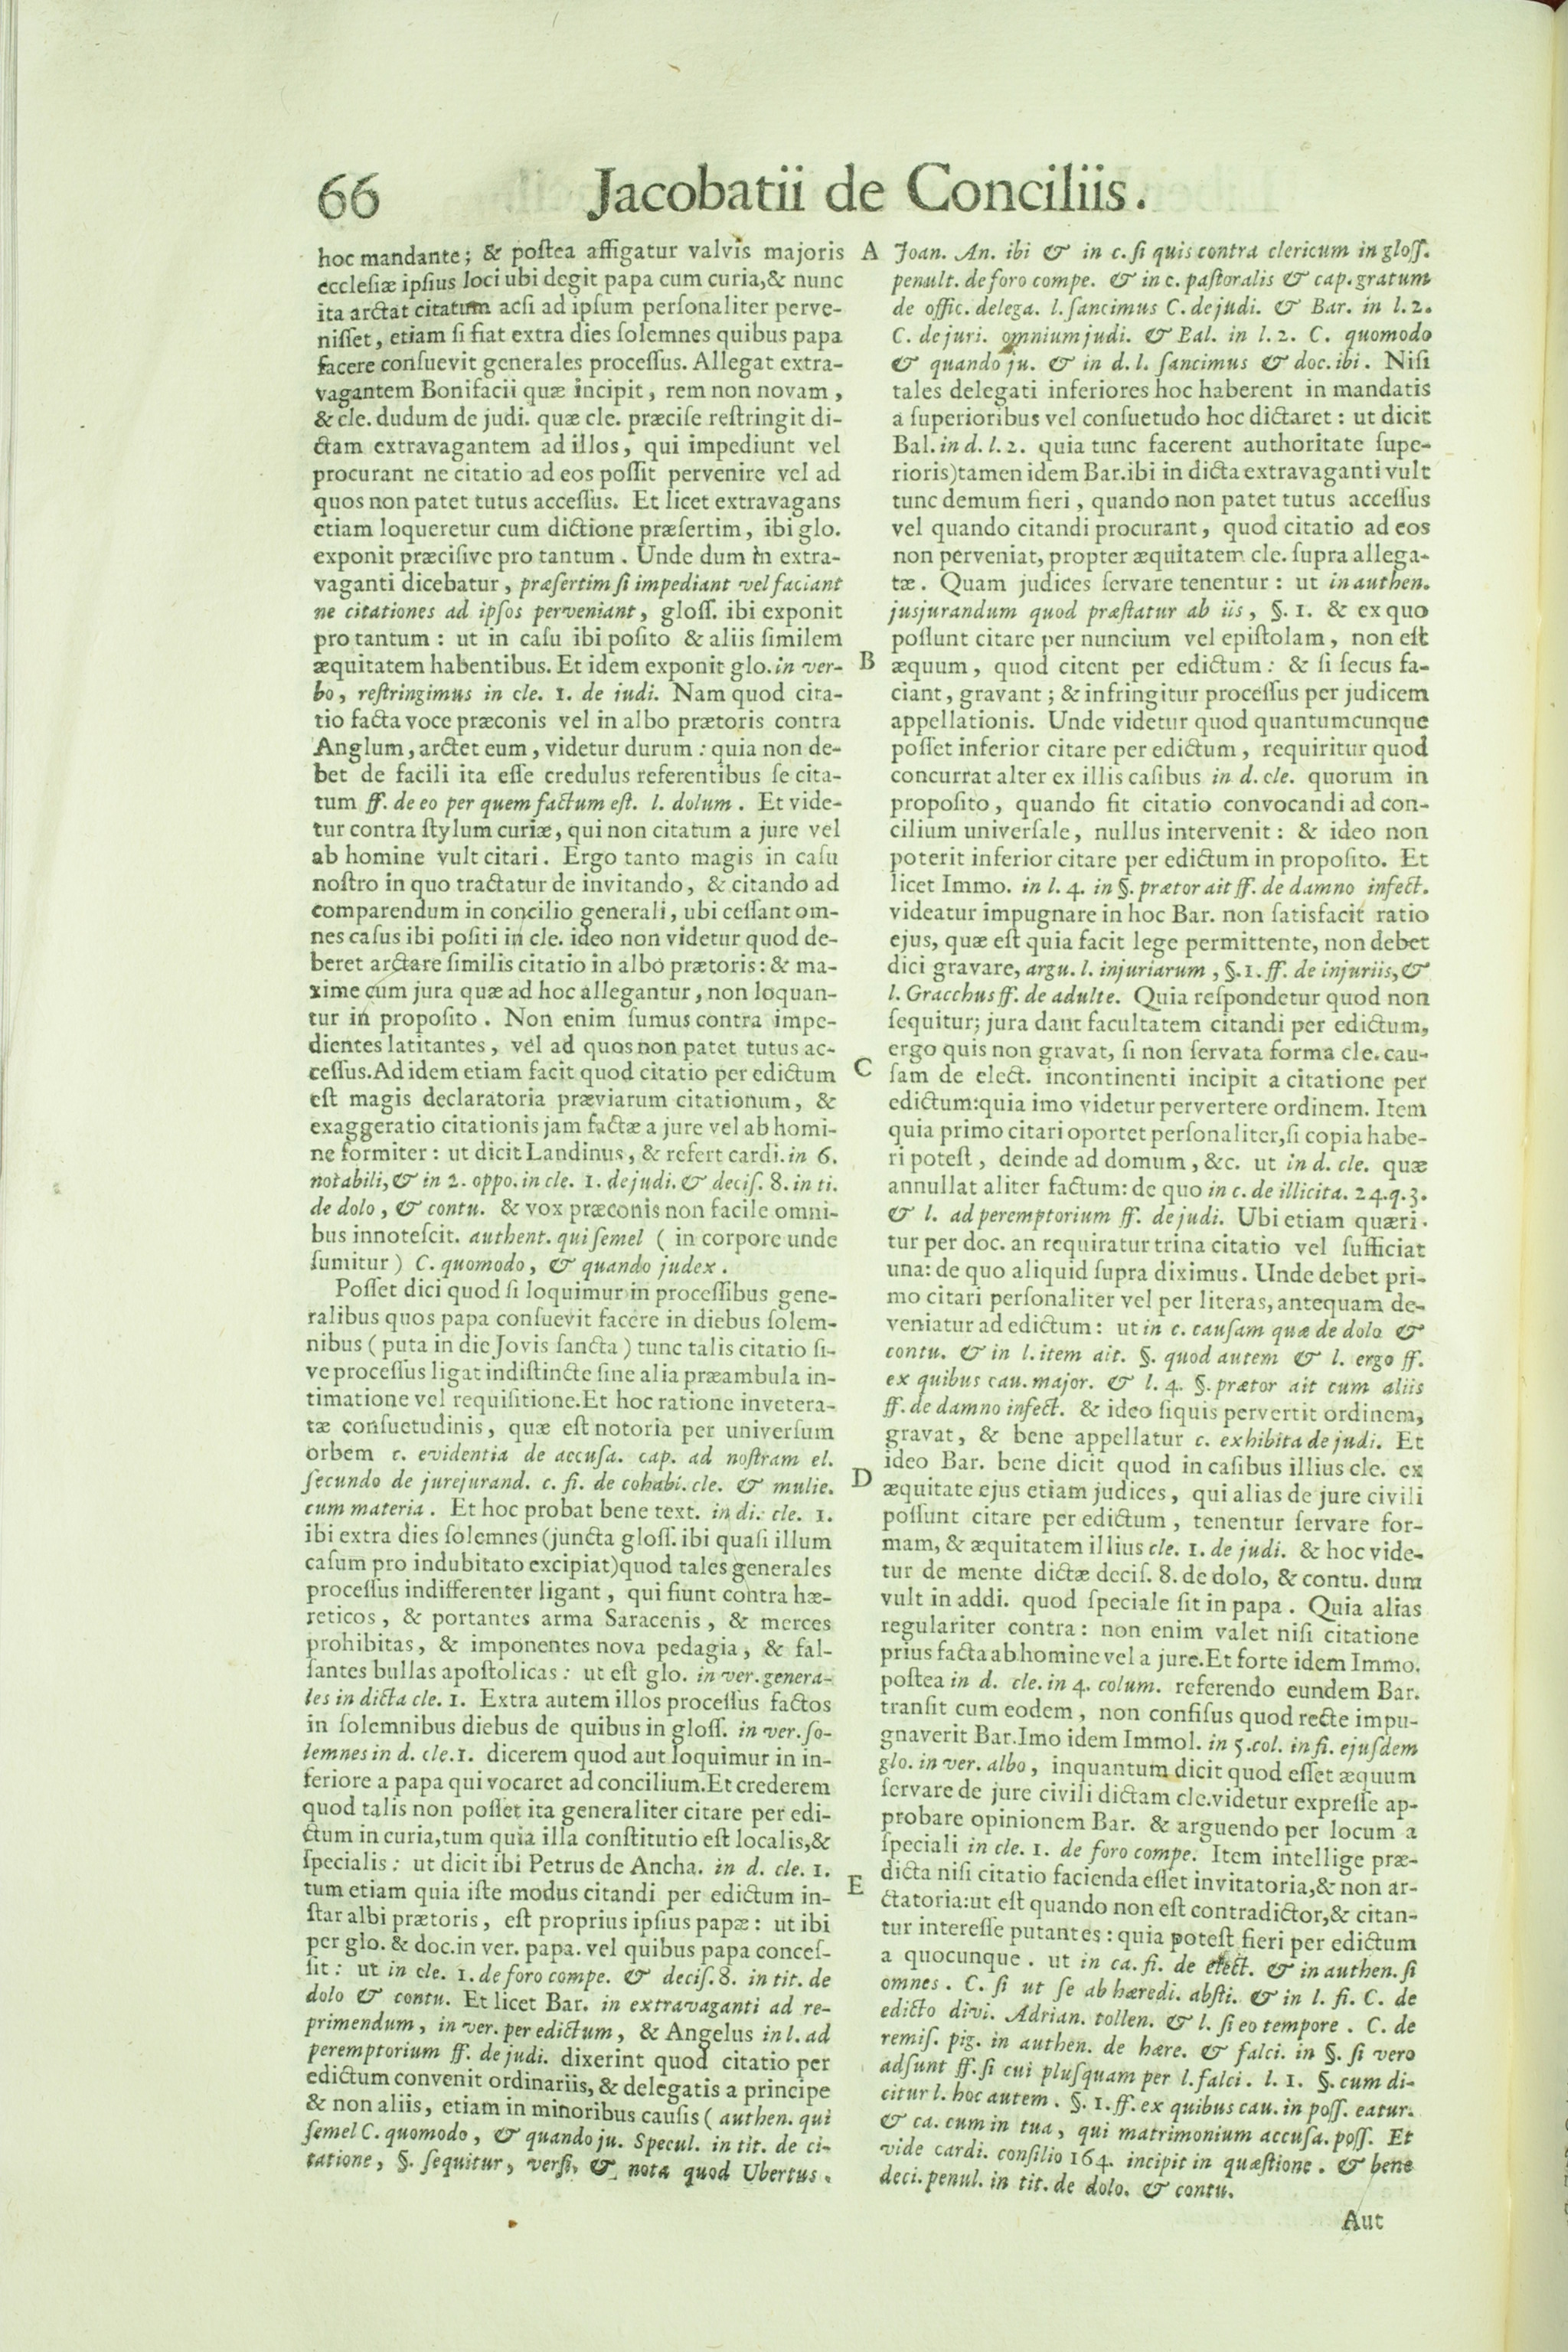 66
Jacobatii de Conciliis.
hoc mandante; & poſtea affigatur valvis majoris
eccleſiæ ipſius loci ubi degit papa cum curia, & nunc
ita arctat citatum acſi ad ipſum perſonaliter perve-
niſſet, etiam ſi fiat extra dies ſolemnes quibus papa
facere conſuevit generales proceſſus. Allegat extra-
vagantem Bonifacii quæ incipit, rem non novam,
& cle. dudum de judi. quæ cle. præciſe reſtringit di-
ctam extravagantem ad illos, qui impediunt vel
procurant ne citatio ad eos poſſit pervenire vel ad
quos non patet tutus acceſſus. Et licet extravagans
etiam loqueretur cum dictione præſertim, ibi glo.
exponit præciſive pro tantum. Unde dum in extra-
vaganti dicebatur, præſertim ſi impediant vel faciant
ne citationes ad ipſos perveniant, gloſſ. ibi exponit
pro tantum: ut in caſu ibi poſito & aliis ſimilem
æquitatem habentibus. Et idem exponit glo. in ver-
bo, reſtringimus in cle. 1. de iudi. Nam quod cita-
tio facta voce præconis vel in albo prætoris contra
Anglum, arctet eum, videtur durum: quia non de-
bet de facili ita eſſe credulus referentibus ſe cita-
tum ff. de eo per quem factum eſt. l. dolum. Et vide-
tur contra ſtylum curiæ, qui non citatum a jure vel
ab homine vult citari. Ergo tanto magis in caſu
noſtro in quo tractatur de invitando, & citando ad
comparendum in concilio generali, ubi ceſſant om-
nes caſus ibi poſiti in cle. ideo non videtur quod de-
beret arctare ſimilis citatio in albo prætoris: & ma-
xime cum jura quæ ad hoc allegantur, non loquan-
tur in propoſito. Non enim ſumus contra impe-
dientes latitantes, vel ad quos non patet tutus ac-
ceſſus. Ad idem etiam facit quod citatio per edictum
eſt magis declaratoria præviarum citationum, &
exaggeratio citationis jam factæ a jure vel ab homi-
ne formiter: ut dicit Landinus, & refert cardi. in 6.
notabili, & in 2. oppo. in cle. 1. de judi. & deciſ. 8. in ti.
de dolo, & contu. & vox præconis non facile omni-
bus innoteſcit. authent. qui ſemel (in corpore unde
ſumitur) C. quomodo, & quando judex.
Poſſet dici quod ſi loquimur in proceſſibus gene-
ralibus quos papa conſuevit facere in diebus ſolem-
nibus (puta in die Jovis ſancta) tunc talis citatio ſi-
ve proceſſus ligat indiſtincte ſine alia præambula in-
timatione vel requiſitione. Et hoc ratione invetera-
tæ conſuetudinis, quæ eſt notoria per univerſum
orbem c. evidentia de accuſa. cap. ad noſtram el.
ſecundo de jurejurand. c. fi. de cohabi. cle. & mulie.
cum materia. Et hoc probat bene text. in di. cle. 1.
ibi extra dies ſolemnes (juncta gloſſ. ibi quaſi illum
caſum pro indubitato excipiat) quod tales generales
proceſſus indifferenter ligant, qui fiunt contra hæ-
reticos, & portantes arma Saracenis, & merces
prohibitas, & imponentes nova pedagia, & fal-
ſantes bullas apoſtolicas: ut eſt glo. in ver. genera-
les in dicta cle. 1. Extra autem illos proceſſus factos
in ſolemnibus diebus de quibus in gloſſ. in ver. ſo-
lemnes in d. cle. 1. dicerem quod aut loquimur in in-
feriore a papa qui vocaret ad concilium. Et crederem
quod talis non poſſet ita generaliter citare per edi-
ctum in curia, tum quia illa conſtitutio eſt localis, &
ſpecialis: ut dicit ibi Petrus de Ancha. in d. cle. 1.
tum etiam quia iſte modus citandi per edictum in-
ſtar albi prætoris, eſt proprius ipſius papæ: ut ibi
per glo. & doc. in ver. papa. vel quibus papa conceſ-
ſit: ut in cle. 1. de foro compe. & deciſ. 8. in tit. de
dolo & contu. Et licet Bar. in extravaganti ad re-
primendum, in ver. per edictum, & Angelus in l. ad
peremptorium ff. de judi. dixerint quod citatio per
edictum convenit ordinariis, & delegatis a principe
& non aliis, etiam in minoribus cauſis (authen. qui
ſemel C. quomodo, & quando ju. Specul. in tit. de ci-
tatione, §. ſequitur, verſi. & nota quod Ubertus.
A
B
C
D
E
Joan. An. ibi & in c. ſi quis contra clericum in gloſſ.
penult. de foro compe. & in c. paſtoralis & cap. gratum
de offic. delega. l. ſancimus C. de judi. & Bar. in l. 2.
C. de juri. omnium judi. & Bal. in l. 2. C. quomodo
& quando ju. & in d. l. ſancimus & doc. ibi. Niſi
tales delegati inferiores hoc haberent in mandatis
a ſuperioribus vel conſuetudo hoc dictaret: ut dicit
Bal. in d. l. 2. quia tunc facerent authoritate ſupe-
rioris) tamen idem Bar. ibi in dicta extravaganti vult
tunc demum fieri, quando non patet tutus acceſſus
vel quando citandi procurant, quod citatio ad eos
non perveniat, propter æquitatem cle. ſupra allega-
tæ. Quam judices ſervare tenentur: ut in authen.
jusjurandum quod præſtatur ab iis, §. 1. & ex quo
poſſunt citare per nuncium vel epiſtolam, non eſt
æquum, quod citent per edictum: & ſi ſecus fa-
ciant, gravant; & infringitur proceſſus per judicem
appellationis. Unde videtur quod quantumcunque
poſſet inferior citare per edictum, requiritur quod
concurrat alter ex illis caſibus in d. cle. quorum in
propoſito, quando fit citatio convocandi ad con-
cilium univerſale, nullus intervenit: & ideo non
poterit inferior citare per edictum in propoſito. Et
licet Immo. in l. 4. in §. prætor ait ff. de damno infect.
videatur impugnare in hoc Bar. non ſatisfacit ratio
ejus, quæ eſt quia facit lege permittente, non debet
dici gravare, argu. l. injuriarum, §. 1. ff. de injuriis, &
l. Gracchus ff. de adulte. Quia reſpondetur quod non
ſequitur; jura dant facultatem citandi per edictum,
ergo quis non gravat, ſi non ſervata forma cle. cau-
ſam de elect. incontinenti incipit a citatione per
edictum: quia imo videtur pervertere ordinem. Item
quia primo citari oportet perſonaliter, ſi copia habe-
ri poteſt, deinde ad domum, &c. ut in d. cle. quæ
annullat aliter factum: de quo in c. de illicita. 24. q. 3.
& l. ad peremptorium ff. de judi. Ubi etiam quæri-
tur per doc. an requiratur trina citatio vel ſufficiat
una: de quo aliquid ſupra diximus. Unde debet pri-
mo citari perſonaliter vel per literas, antequam de-
veniatur ad edictum: ut in c. cauſam quæ de dolo &
contu. & in l. item ait. §. quod autem & l. ergo ff.
ex quibus cau. major. & l. 4. §. prætor ait cum aliis
ff. de damno infect. & ideo ſiquis pervertit ordinem,
gravat, & bene appellatur c. exhibita de judi. Et
ideo Bar. bene dicit quod in caſibus illius cle. ex
æquitate ejus etiam judices, qui alias de jure civili
poſſunt citare per edictum, tenentur ſervare for-
mam, & æquitatem illius cle. 1. de judi. & hoc vide-
tur de mente dictæ deciſ. 8. de dolo, & contu. dum
vult in addi. quod ſpeciale ſit in papa. Quia alias
regulariter contra: non enim valet niſi citatione
prius facta ab homine vel a jure. Et forte idem Immo.
poſtea in d. cle. in 4. colum. referendo eundem Bar.
tranſit cum eodem, non confiſus quod recte impu-
gnaverit Bar. Imo idem Immol. in 5. col. in fi. ejuſdem
glo. in ver. albo, inquantum dicit quod eſſet æquum
ſervare de jure civili dictam cle. videtur expreſſe ap-
probare opinionem Bar. & arguendo per locum a
ſpeciali in cle. 1. de foro compe. Item intellige præ-
dicta niſi citatio facienda eſſet invitatoria, & non ar-
ctatoria: ut eſt quando non eſt contradictor, & citan-
tur intereſſe putantes: quia poteſt fieri per edictum
a quocunque. ut in ca. fi. de elect. & in authen. ſi
omnes. C. ſi ut ſe ab hæredi. abſti. & in l. fi. C. de
edicto divi. Adrian. tollen. & l. ſi eo tempore. C. de
remiſ. pig. in authen. de hære. & falci. in §. ſi vero
adſunt ff. ſi cui pluſquam per l. falci. l. 1. §. cum di-
citur l. hoc autem. §. 1. ff. ex quibus cau. in poſſ. eatur.
& ca. cum in tua, qui matrimonium accuſa. poſſ. Et
vide cardi. conſilio 164. incipit in quæſtione. & bene
deci. penul. in tit. de dolo. & contu.
Aut